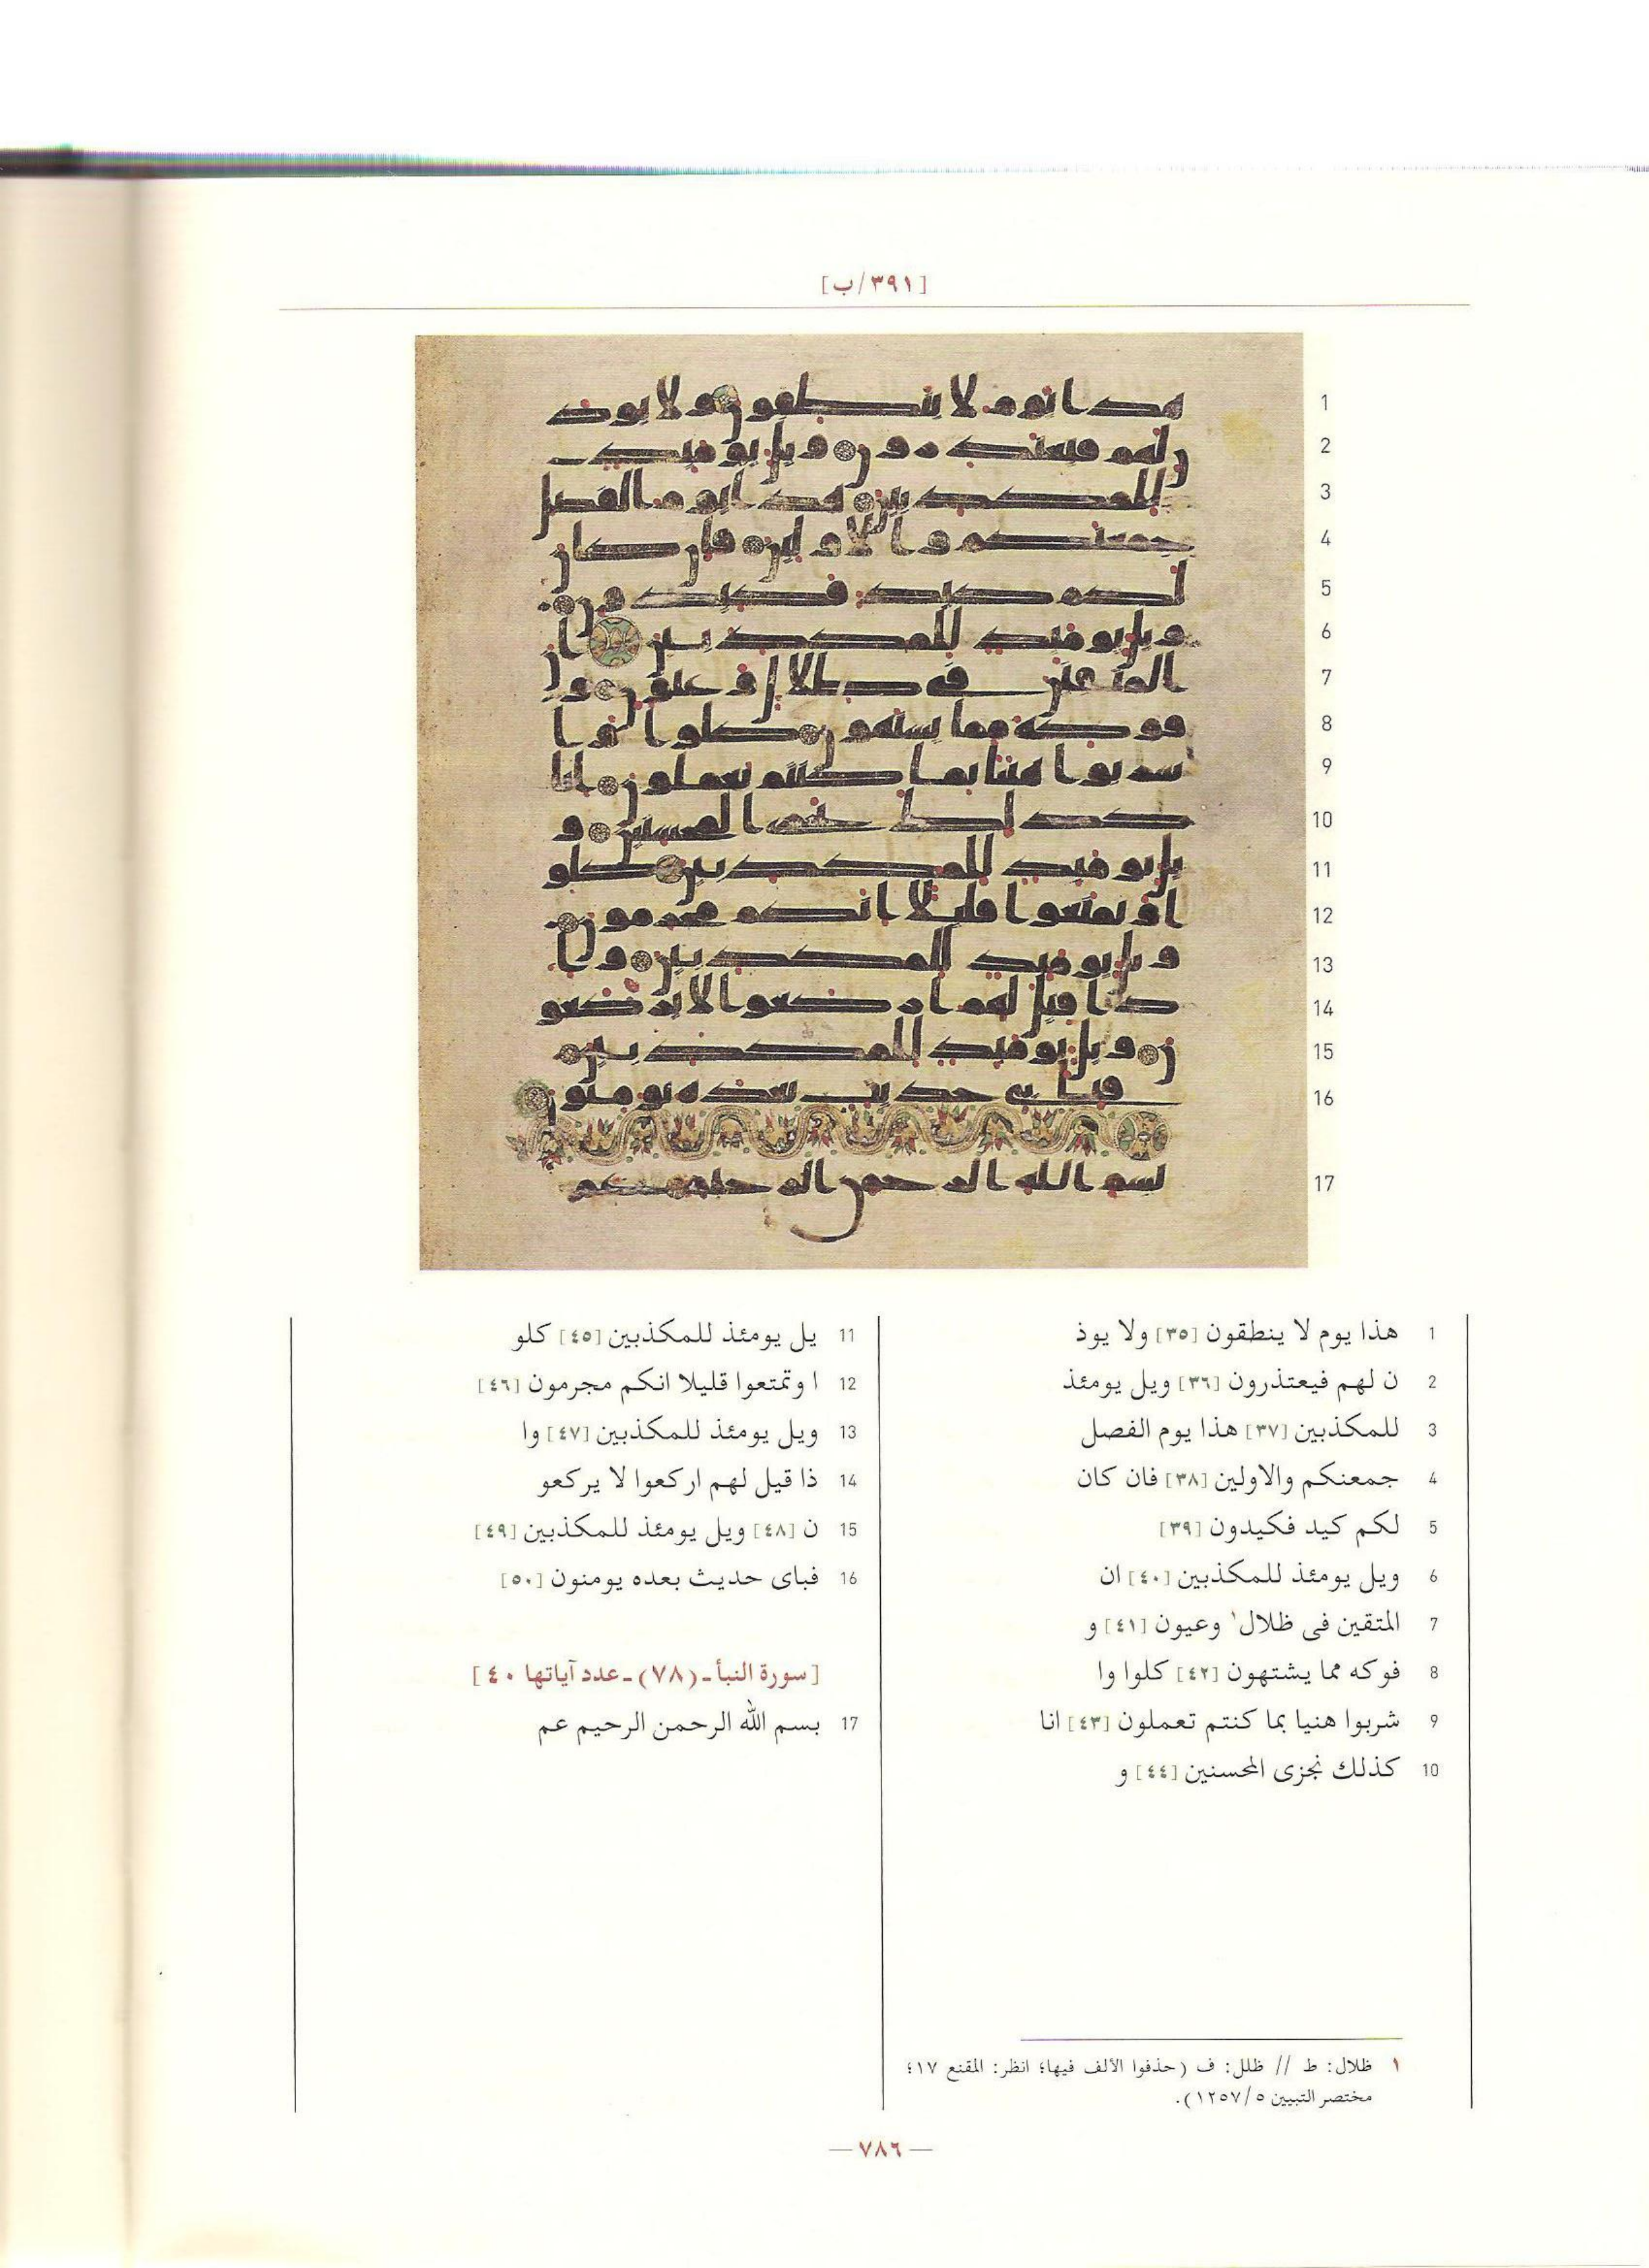 [٣٩١/ب]
1
2
3
4
5
6
7
8
9
10
11
12
13
14
15
16
17
1 هذا يوم لا ينطقون [٣٥] ولا يوذ
2 ن لهم فيعتذرون [٣٦] ويل يومئذ
3 للمكذبين [٣٧] هذا يوم الفصل
4 جمعنكم والاولين [٣٨] فان كان
5 لكم كيد فكيدون [٣٩]
6 ويل يومئذ للمكذبين [٤٠] ان
7 المتقين فى ظلال١ وعيون [٤١] و
8 فوكه مما يشتهون [٤٢] كلوا وا
9 شربوا هنيا بما كنتم تعملون [٤٣] انا
10 كذلك نجزى المحسنين [٤٤] و
11 يل يومئذ للمكذبين [٤٥] كلو
12 ا وتمتعوا قليلا انكم مجرمون [٤٦]
13 ويل يومئذ للمكذبين [٤٧] وا
14 ذا قيل لهم اركعوا لا يركعو
15 ن [٤٨] ويل يومئذ للمكذبين [٤٩]
16 فباى حديث بعده يومنون [٥٠]
[سورة النبأ ـ (٧٨) ـ عدد آياتها ٤٠]
17 بسم الله الرحمن الرحيم عم
١ ظلال: ط // ظلل: ف (حذفوا الألف فيها؛ انظر: المقنع ١٧؛
مختصر التبيين ١٢٥٧/٥).
— ٧٨٦ —